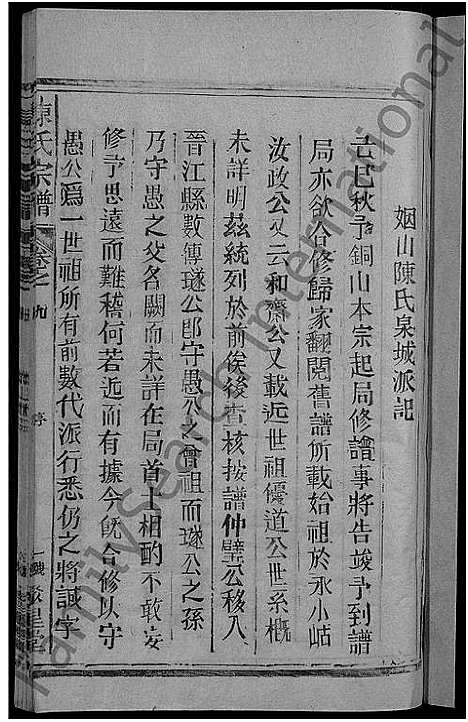 姻山陳氏泉城派記
去巳秋予銅山本宗起局修譜事將告竣予到譜
局亦欲合修歸家翻閱舊譜所載始祖於永小岵
汝政公又云和齋公又載近世祖優道公世系概
未詳明茲統列於前俟後查核按譜仲璧公移入
晉江縣數傳璲公郎守愚公之曾祖而璲公之孫
乃守愚之父各闕而未詳在局首士相酌不敢妄
修予思遠而難稽何若近而有據今既合修以守
愚公爲一世祖所有前數代派行悉仍之將誠字
陳氏宗譜
卷之九
序
FamilySearch International